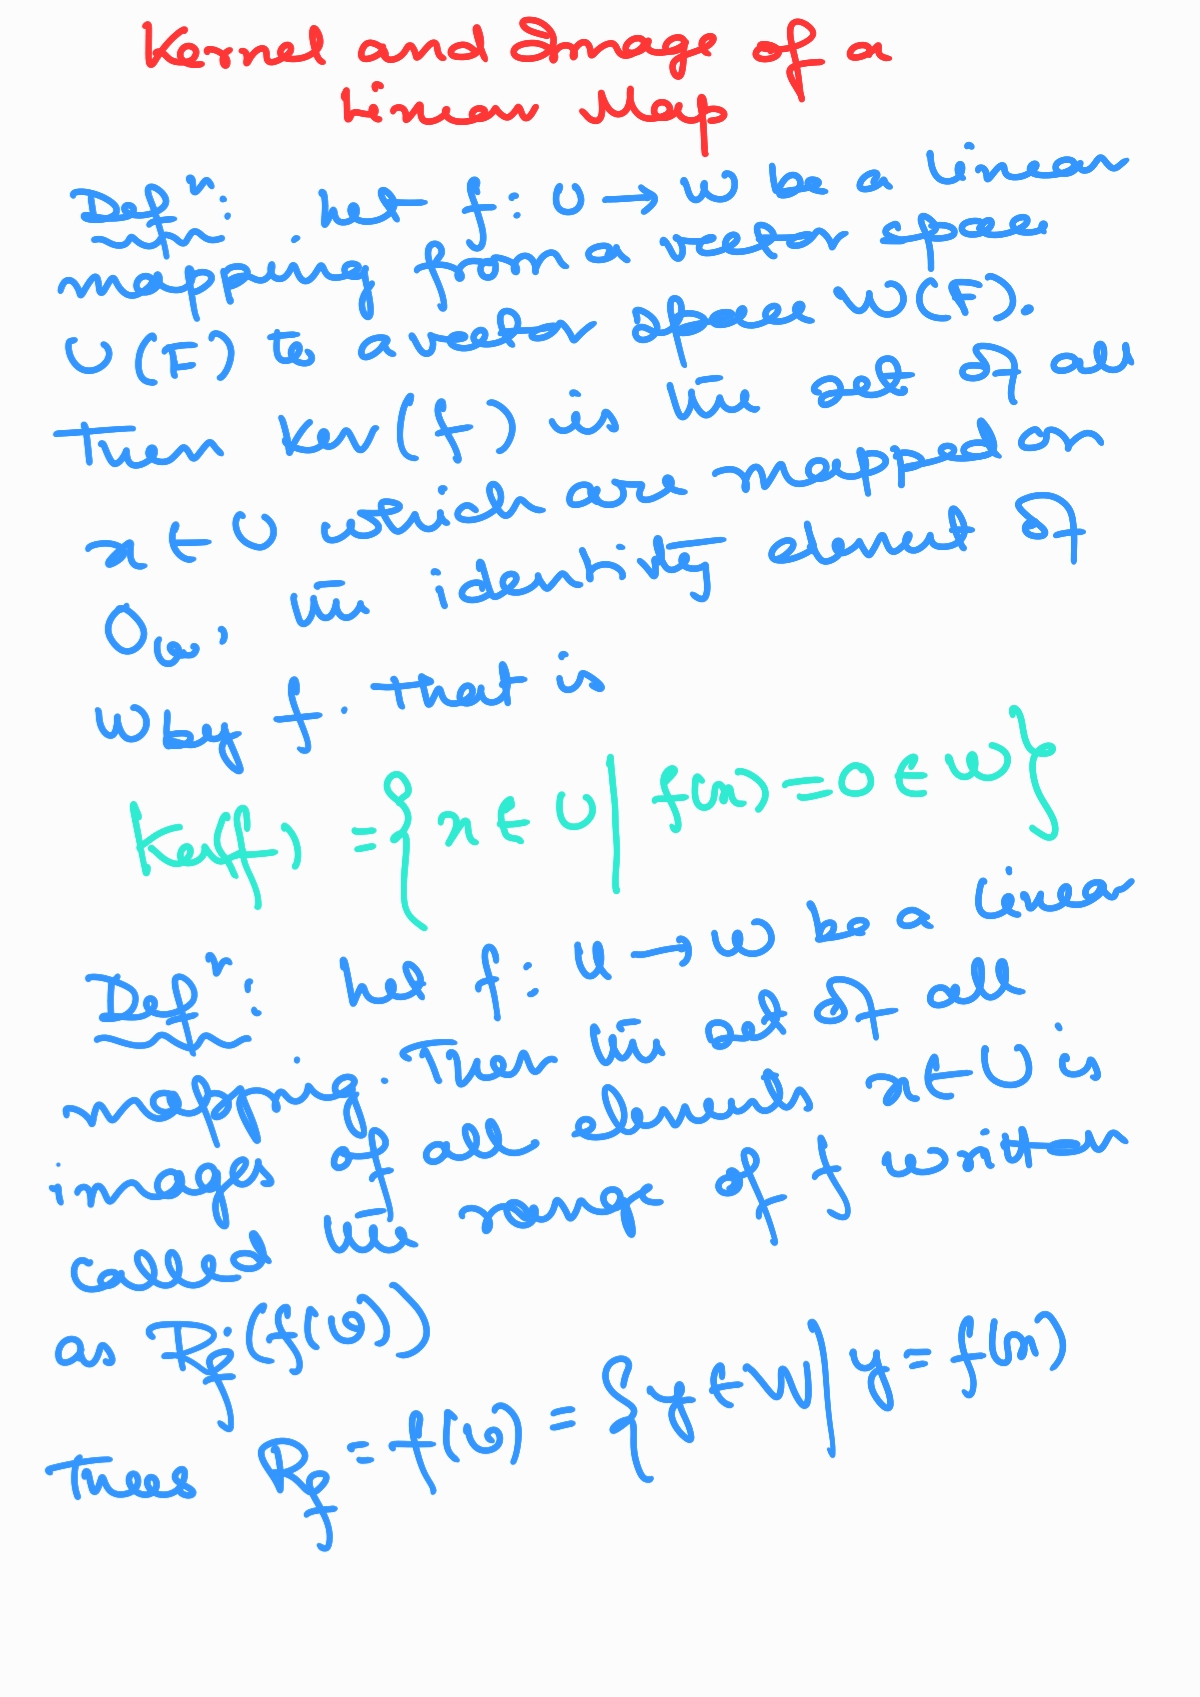 Kernel and Image of a
Linear Map
Defⁿ: Let f: U → W be a linear
mapping from a vector space
U(F) to a vector space W(F).
Then Ker(f) is the set of all
x ∈ U which are mapped on
0_w, the identity element of
W by f. That is
Ker(f) = {x ∈ U | f(x) = 0 ∈ W}
Defⁿ: Let f: U → W be a linear
mapping. Then the set of all
images of all elements x ∈ U is
called the range of f written
as R_f (f(U))
Thus R_f = f(U) = {y ∈ W | y = f(x)